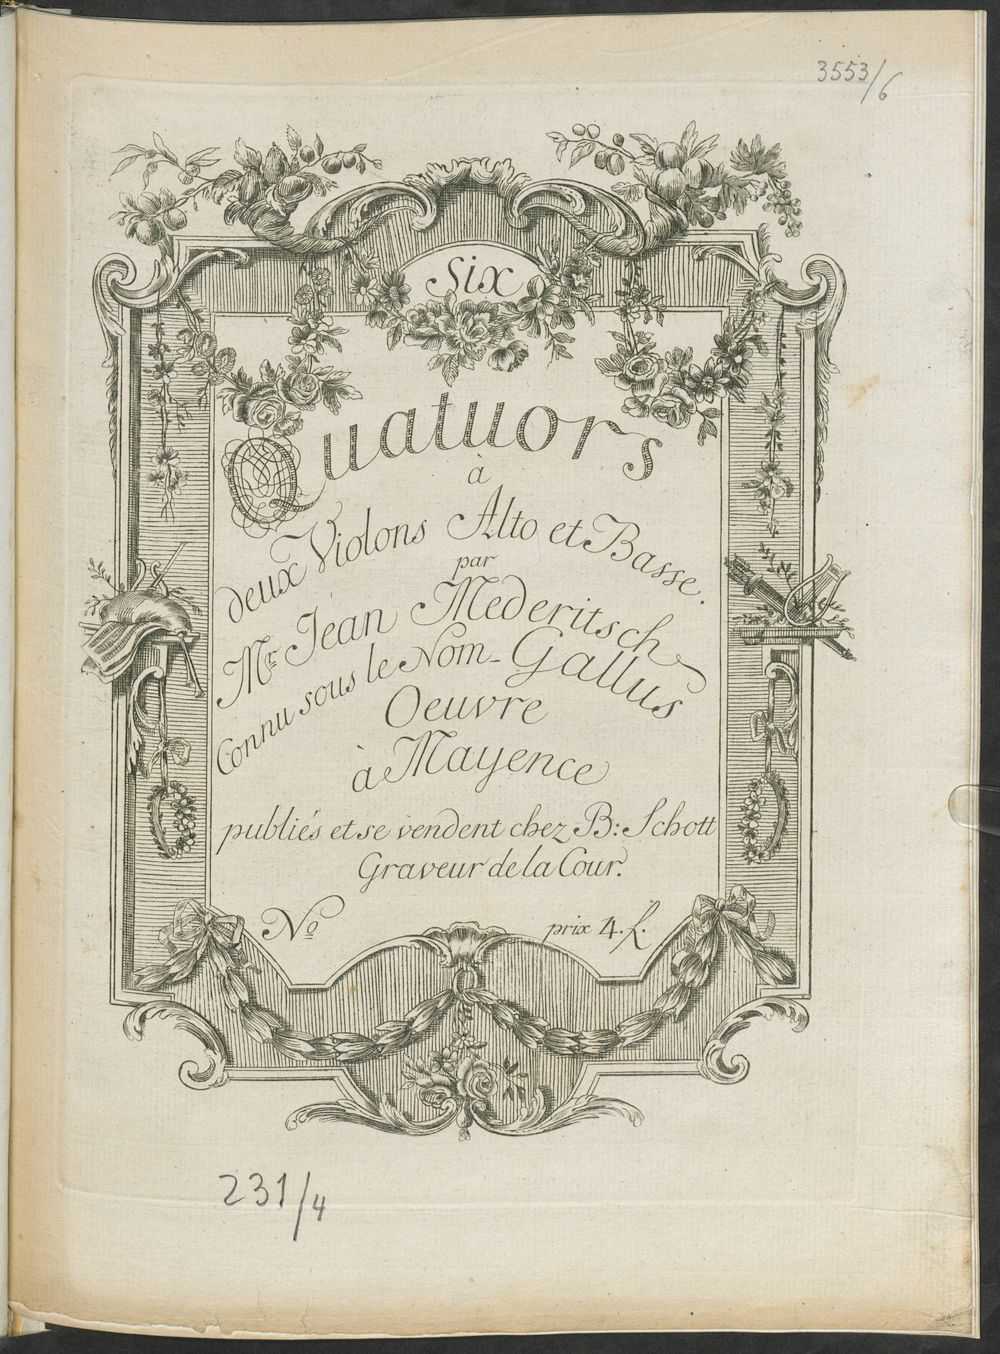 3553/6
Six
Quatuors
à
deux Violons Alto et Basse.
par
Mr. Jean Mederitsch
Connu sous le Nom - Gallus
Oeuvre
à Mayence
publiés et se vendent chez B: Schott
Graveur de la Cour.
No prix 4. f.
231/4